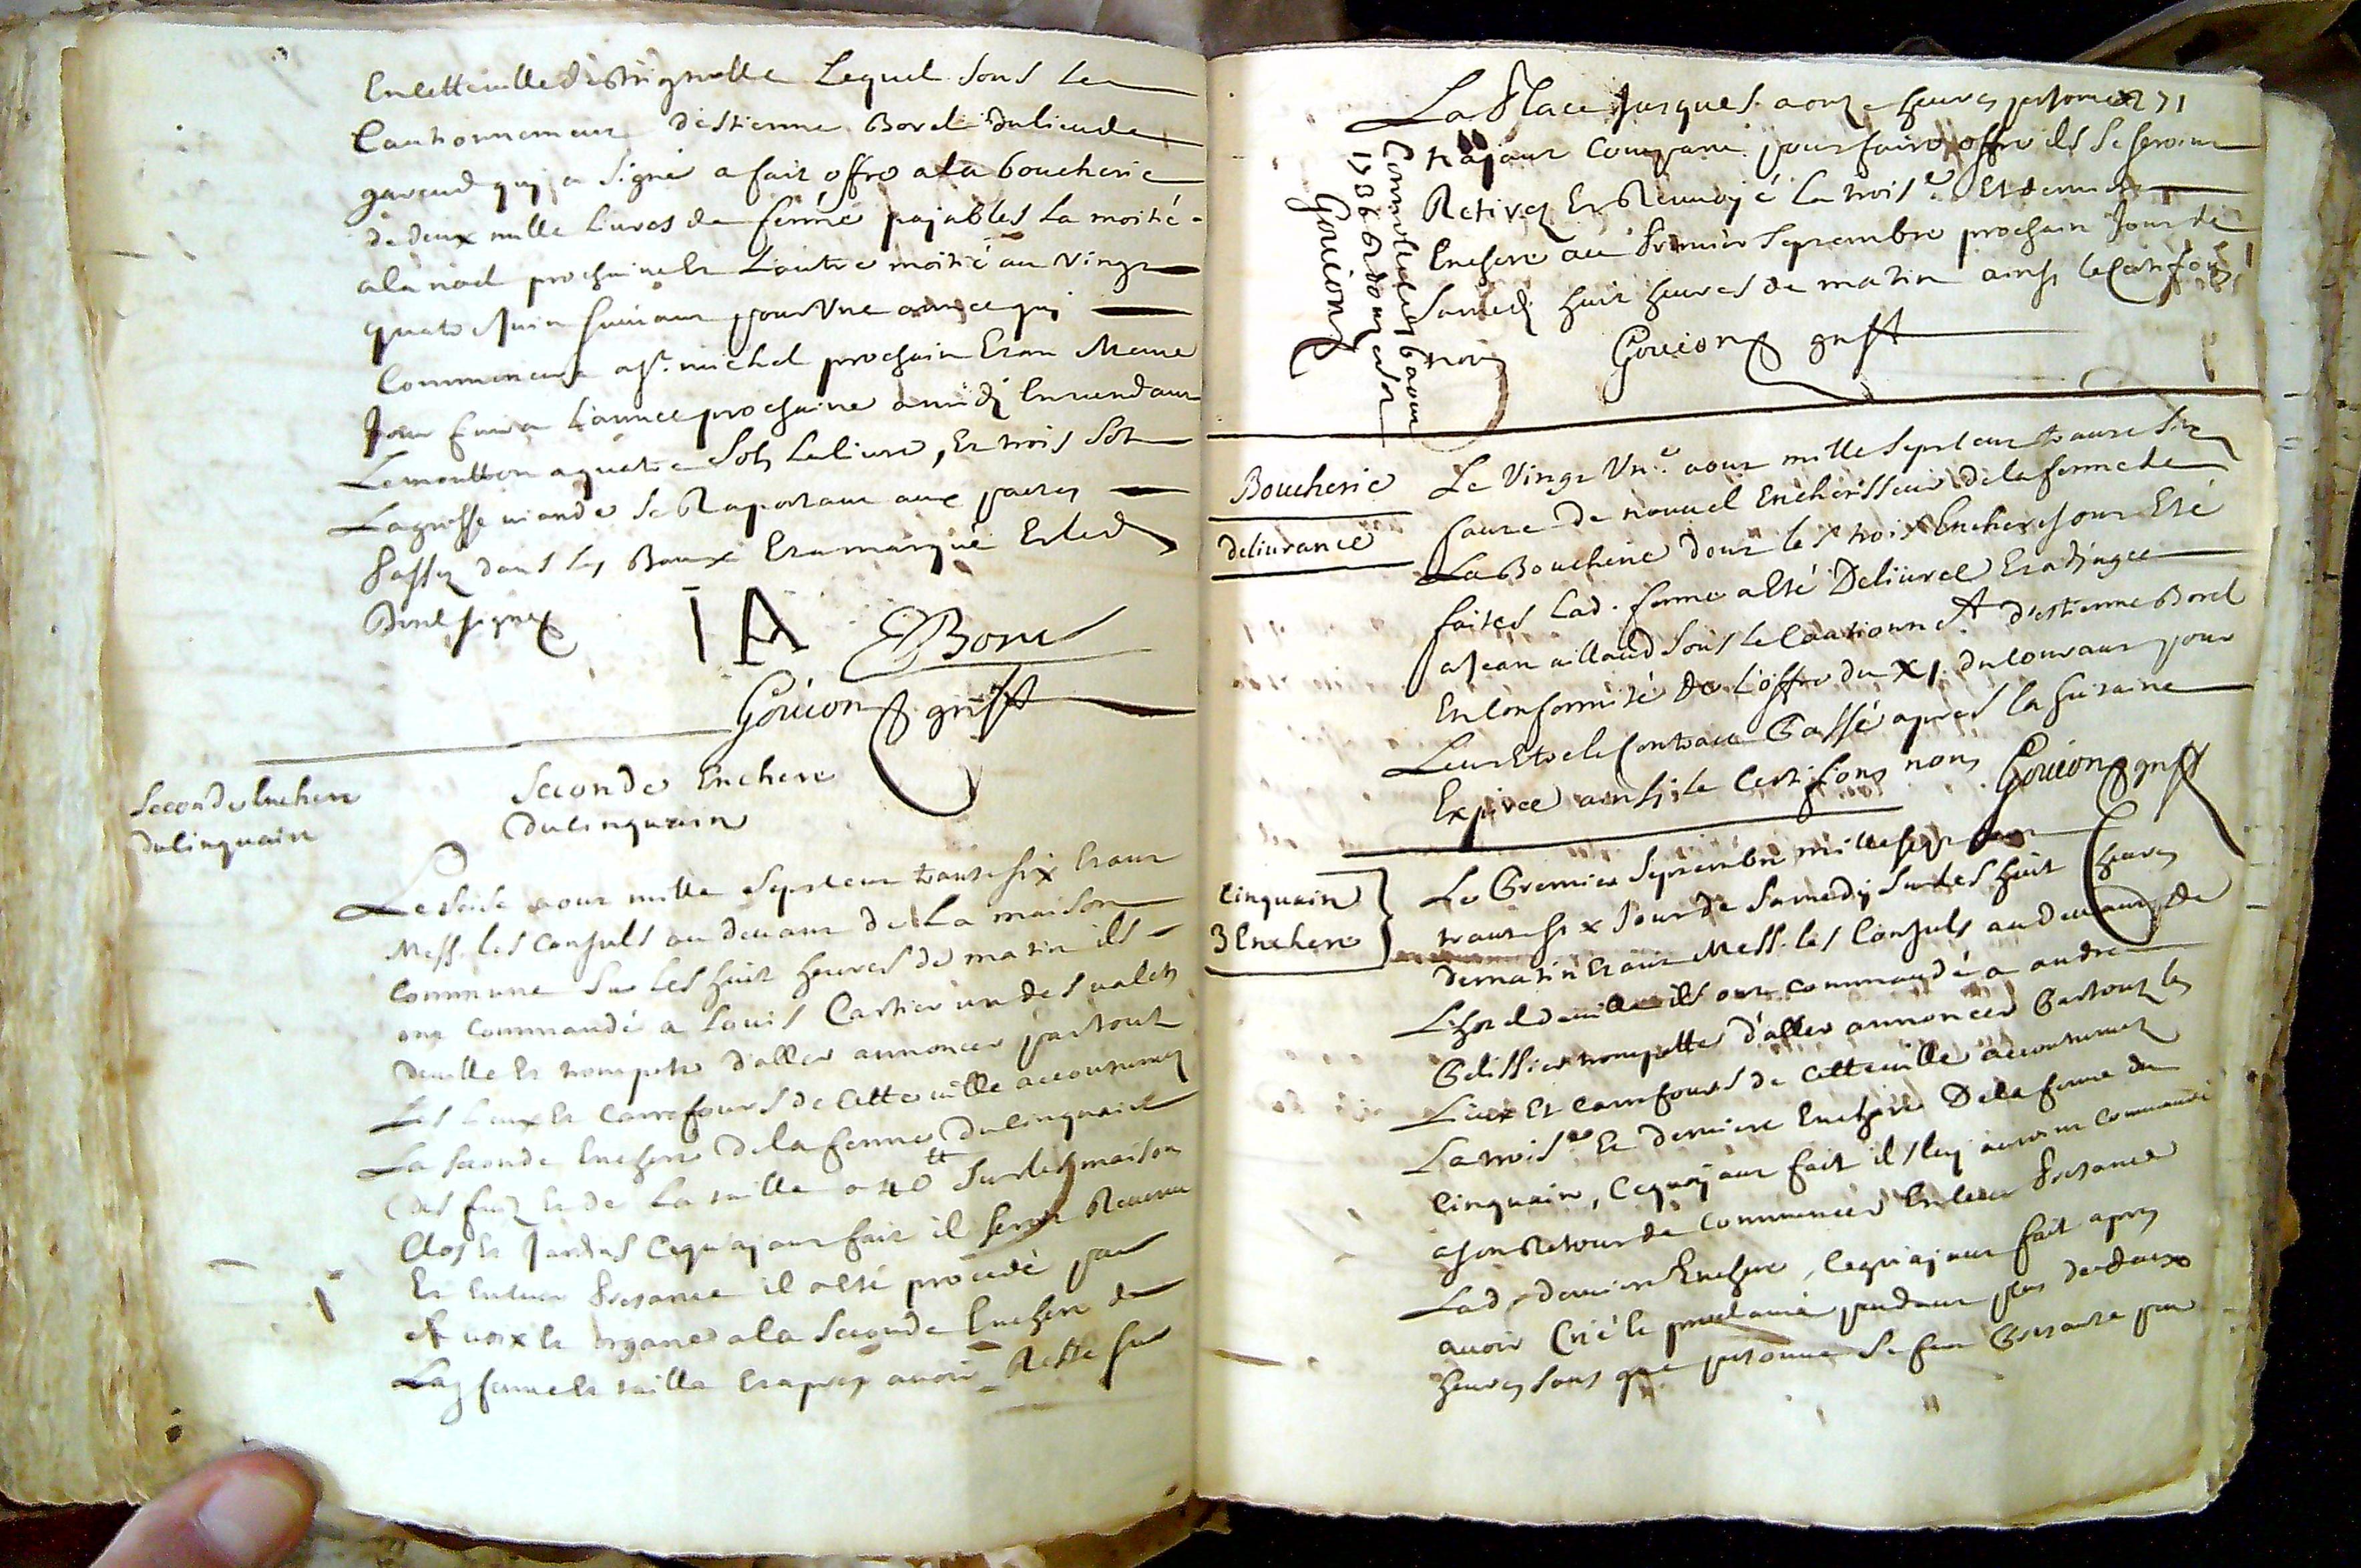 En cette ville de Brignolle Lequel sous le
Cautionnement d'Estienne Borel du lieu de
gareud qui a signé a fait offre a la boucherie
de deux mille livres de ferme pajables La moitié
a la noel prochaine Et L'autre moitié au Vingt
quatre Juin suivant pour Une année qui
Commencera a St. michel prochain Et au Meme
Jour finira L'année prochaine a midi En vendant
Le moutton a quatre sols La livre, Et trois sols
La grosse viande Se Raportant aux pactes
Passez dans les Baux Et a marqué Et led
Borel signé
IA EBorel
Goujon greff
Seconde Enchere
du Cinquain
Seconde Enchere
du Cinquain
Le seise aout mille Sept cent trante six Etant
Mess. les Consuls au devant de La maison
Commune Sur Les huit heures de matin ils
ont Commandé a Louis Cartier un des valets
de ville Et trompete d'aller annoncer partout
Les Lieux Et Carrefours de Cette ville accoutumez
La seconde Enchere de la ferme du Cinquain
des fruits Et de La taille a 40tt sur les maison
Clos Et Jardins Ce qu'ajant fait il seroit Revenu
Et En leur Presance il a esté procedé par
sa voix Et organe a la Seconde Enchere de
Lad ferme Et taille Et apres avoir Resté sur
La Place Jusques a onze heures personne 71
n'ajant Comparu pour faire offre ils se seroint
Retirez Et Renvojé La trois.e Et derniere
Enchere au Premier Septembre prochain Jour de
Samedi huit heures de matin ainsi le Certifions
nous Goujon greff
Controllé le 16 aout
1736
Goujon
Boucherie
delivrance
Le Vingt Un.e aout mille Sept cent trante Six
faute de nouvel Encherisseur de la ferme de
La Boucherie dont les trois Encheres ont Eté
faites Lad. ferme a Eté Delivree Et adjugee
a Jean aillaud Sous le Cautionnet d'Estienne Borel
En Conformité de L'offre du XI. du Courant pour
Leur Etre le Contract Passé apres la huitaine
Expiree ainsi le Certifions nous Goujon greff
Cinquain
3 Enchere
Le Premier Septembre mille sept cent
trante six Jour de Samedy Sur les huit heures
de matin Etant Mess. les Consuls au devant de
L'hotel de ville ils ont commandé a andré
Pelissier trompette d'aller annoncer Partout les
Lieux Et Carrefours de Cette ville accoutumez
La trois.e Et derniere Enchere De la ferme du
Cinquain, Ce qu'ajant fait ils luj auroint Commandé
a son Retour de Commencer En leur Presance
Lad. derniere Enchere, Ce qu'ajant fait apres
avoir Crié Et proclamé pendant plus de deux
heures sans que personne Se soit Presanté pour